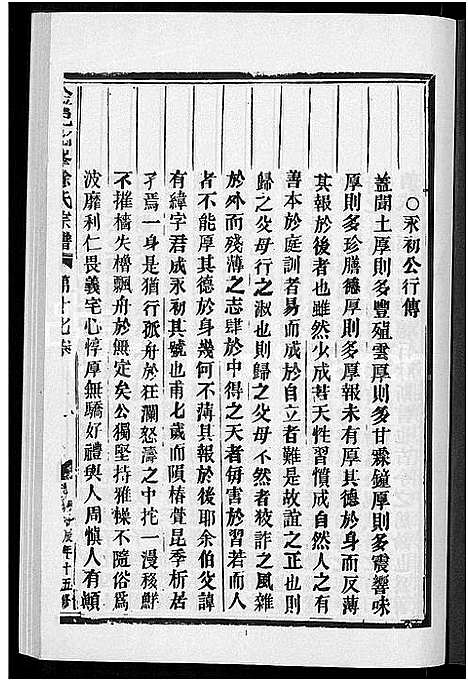 ○永初公行傳
蓋聞土厚則多豐殖雲厚則多甘霖鐘厚則多震響味
厚則多珍膳德厚則多厚報未有厚其德於身而反薄
其報於後者也雖然少成若天性習慣成自然人之有
善本於庭訓者易而成於自立者難是故誼之正也則
歸之父母行之淑也則歸之父母不然者狡詐之風雜
於外而殘薄之志肆於中得之天者每害於習若而人
者不能厚其德於身幾何不薄其報於後耶余伯父諱
有緯字君成永初其號也甫七歲而隕椿萱昆季析居
孑焉一身是猶行孤舟於狂瀾怒濤之中扽一漫移鮮
不摧檣失櫓飄舟於無定矣公獨堅持雅操不隨俗為
波靡利仁畏義宅心惇厚無驕好禮與人周慎人有顛
徐氏宗譜